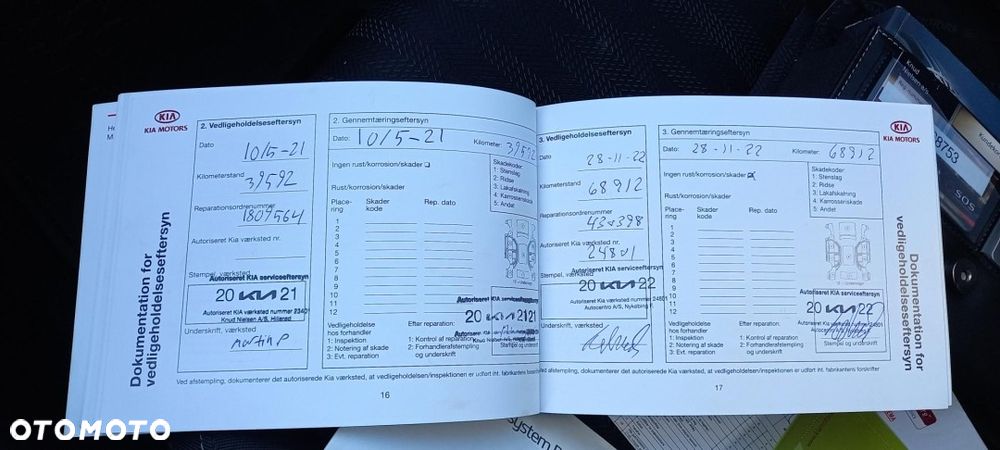 KIA
KIA MOTORS
Dokumentation for
vedligeholdelseseftersyn
2. Vedligeholdelseseftersyn
Dato
10/5-21
Kilometerstand
39592
Reparationsordrenummer
1809564
Autoriseret Kia værksted nr.
Stempel, værksted
Autoriseret KIA serviceeftersyn
20 KIA 21
Autoriseret KIA værksted nummer
Knud Nielsen A/S, Hillerød
Underskrift, værksted
Martin P
2. Gennemtæringseftersyn
Dato: 10/5-21
Kilometer: 39592
Ingen rust/korrosion/skader
Rust/korrosion/skader
Skadekoder:
1: Stenslag
2: Ridse
3: Lakafskalning
4: Karrosseriskade
5: Andet
Place-
ring
Skader
kode
Rep. dato
1
2
3
4
5
6
7
8
9
10
11
12
Autoriseret KIA serviceeftersyn
20 KIA 21
Vedligeholdelse
hos forhandler
1: Inspektion
2: Notering af skade
3: Evt. reparation
Efter reparation:
1: Kontrol af reparation
2: Forhandlerafstempling
og underskrift
Stempel og underskrift
Ved afstempling, dokumenterer det autoriserede Kia værksted, at vedligeholdelsen/inspektionen er udført iht. fabrikantens
16
3. Vedligeholdelseseftersyn
Dato
28-11-22
Kilometerstand
68912
Reparationsordrenummer
Autoriseret Kia værksted nr.
24801
Stempel, værksted
Autoriseret KIA serviceeftersyn
20 KIA 22
Autoriseret KIA værksted nummer 24801
Autocentro A/S, Nykøbing F.
Underskrift, værksted
3. Gennemtæringseftersyn
Dato: 28-11-22
Kilometer: 68912
Ingen rust/korrosion/skader
Rust/korrosion/skader
Skadekoder:
1: Stenslag
2: Ridse
3: Lakafskalning
4: Karrosseriskade
5: Andet
Place-
ring
Skader
kode
Rep. dato
1
2
3
4
5
6
7
8
9
10
11
12
Autoriseret KIA serviceeftersyn
20 KIA 22
Autoriseret KIA værksted nummer 24801
Autocentro A/S, Nykøbing F.
Vedligeholdelse
hos forhandler
1: Inspektion
2: Notering af skade
3: Evt. reparation
Efter reparation:
1: Kontrol af reparation
2: Forhandlerafstempling
og underskrift
Stempel og underskrift
Ved afstempling, dokumenterer det autoriserede Kia værksted, at vedligeholdelsen/inspektionen er udført iht. fabrikantens forskrifter
17
KIA
KIA MOTORS
Dokumentation for
vedligeholdelseseftersyn
Knud
Nielsen A/S
SOS
OTOMOTO